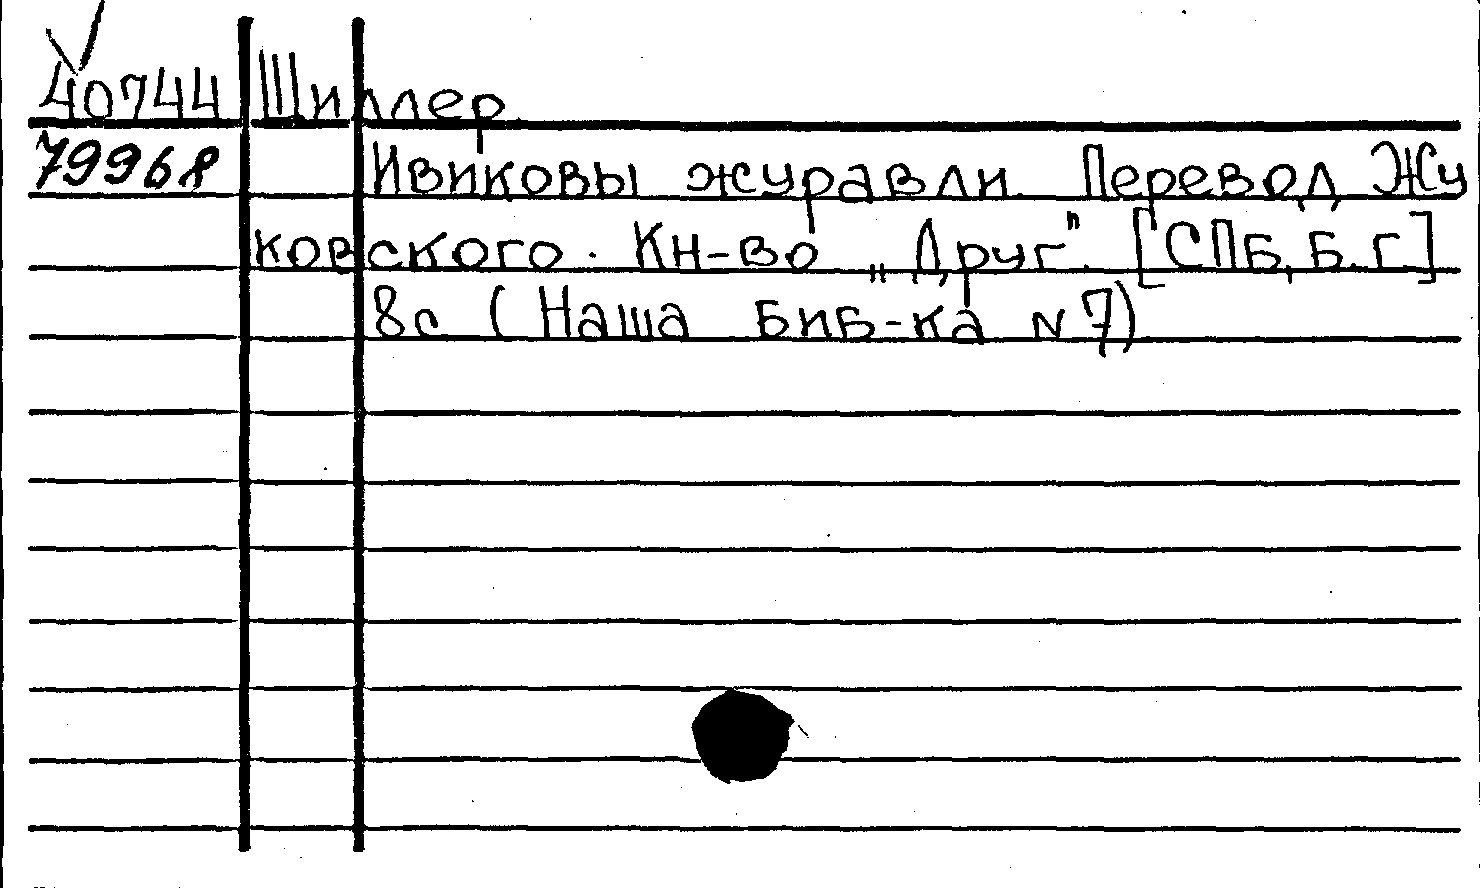 40744 Шиллер
79968 Ивиковы журавли. Перевод Жу
ковского. Кн-во „Друг". [СПБ, Б. г.]
8с (Наша Биб-ка №7)